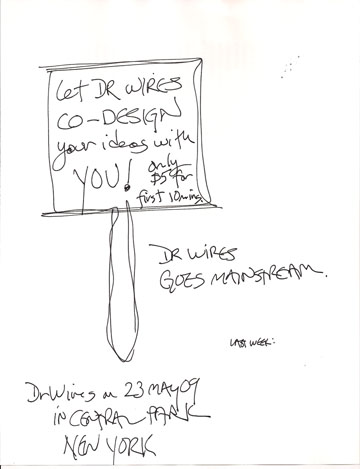 Let DR WIRES
CO-DESIGN
your ideas with
YOU!
only
$5 for
first 10 mins
DR WIRES
GOES MAINSTREAM.
LAST WEEK:
Dr Wires on 23 MAY 09
IN CENTRAL PARK
NEW YORK